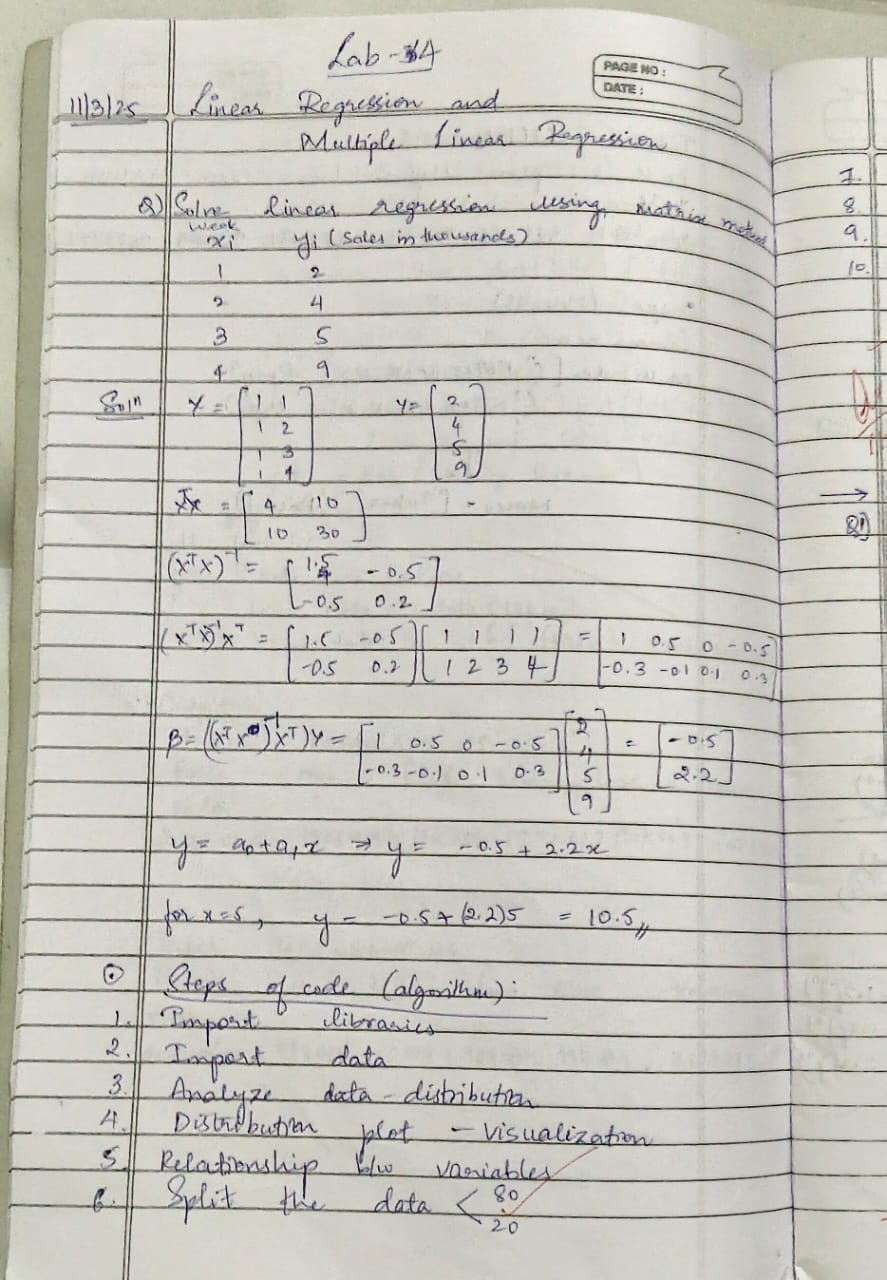 Lab-4
PAGE NO:
DATE:
11/3/25 Linear Regression and
Multiple Linear Regression
Q) Solve linear regression using matrix method
week
xi yi (Sales in thousands)
1 2
2 4
3 5
4 9
Solⁿ X = [ 1 1 Y= [ 2
1 2 4
1 3 5
1 4 ] 9 ]
XᵀX = [ 4 10
10 30 ]
(XᵀX)⁻¹ = [ 1.5 -0.5
-0.5 0.2 ]
(XᵀX)⁻¹Xᵀ = [ 1.5 -0.5 ] [ 1 1 1 1 ] = [ 1 0.5 0 -0.5
-0.5 0.2 ] [ 1 2 3 4 ] -0.3 -0.1 0.1 0.3 ]
β = ((XᵀX)⁻¹Xᵀ)Y = [ 1 0.5 0 -0.5 ] [ 2 = [ -0.5
-0.3 -0.1 0.1 0.3 ] 4 2.2 ]
5
9 ]
y = a₀+a₁x ⇒ y = -0.5 + 2.2x
for x=5, y = -0.5+(2.2)5 = 10.5,,
⊙ Steps of code (algorithm):
1. Import libraries
2. Import data
3. Analyze data - distribution
4. Distribution plot - visualization
5. Relationship b/w variables
6. Split the data < 80
20
7.
8
9.
10.
→
Q1)